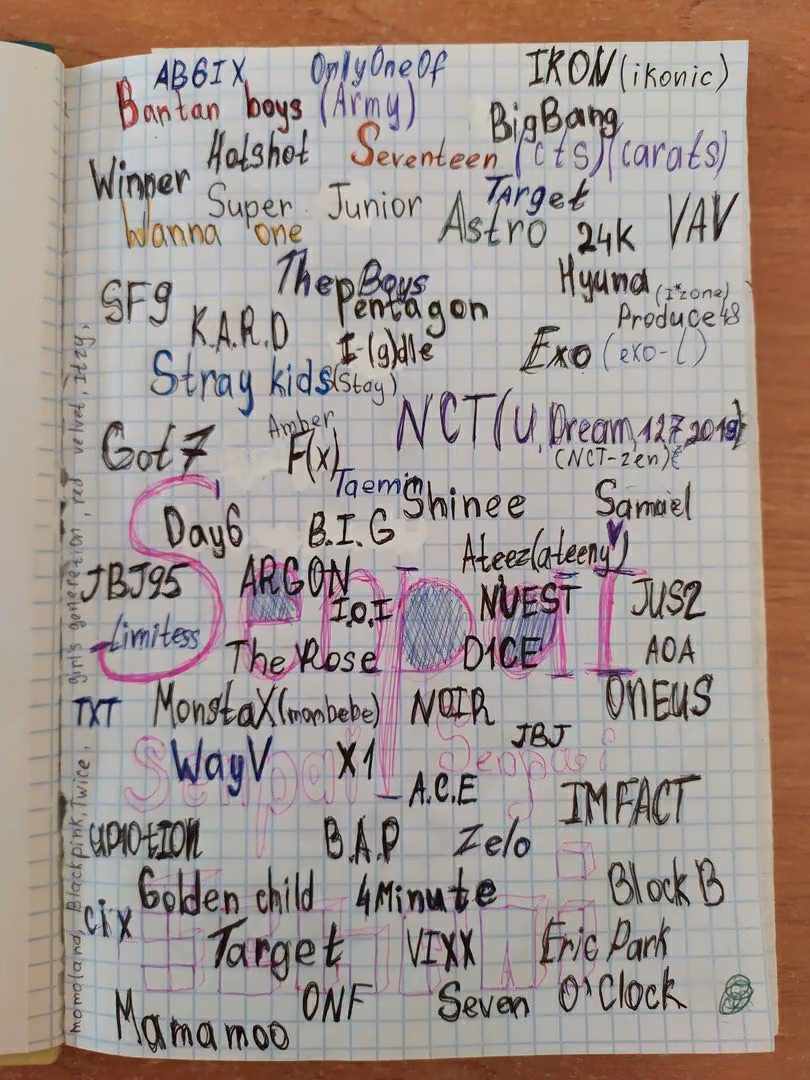 AB6IX OnlyOneOf IKON (ikonic)
Bantan boys (Army) BigBang
Hotshot Seventeen (cts) (carats)
Winner Super Junior TArget
Wanna one Astro 24K VAV
The Boys Hyuna (I*zone)
SF9 Pentagon Produce 48
K.A.R.D I-(g)dle Exo (exo-l)
Stray kids (Stay)
Amber NCT (U, Dream, 127, 2018)
Got7 F(x) (NCT-zen)
Taemin Shinee Samuel
Day6 B.I.G
Ateez (ateeny)
JBJ95 ARGON I.O.I NUEST JUS2
Senpai
Limitess The Rose D1CE AOA
TXT MonstaX (monbebe) NOIR ONEUS
JBJ
WayV X1
Senpai Senpai
A.C.E IMFACT
UP10TION B.A.P Zelo
Golden child 4Minute Block B
Cix Target VIXX Eric Park
ONF Seven O'Clock
Mamamoo
momoland, Blackpink, Twice, girls generetion, red velvet, Itzy,